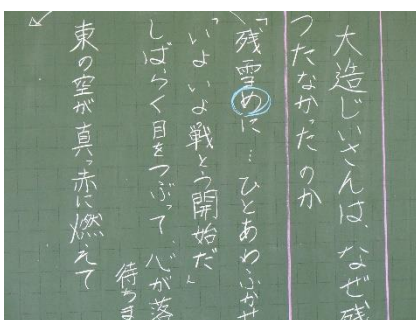 大造じいさんは、なぜ残
つたなかったのか
「残雪めに…ひとあわふかせ
「いよいよ戦とう開始だ」
しばらく目をつぶって心が落
待ちま
東の空が真っ赤に燃えて